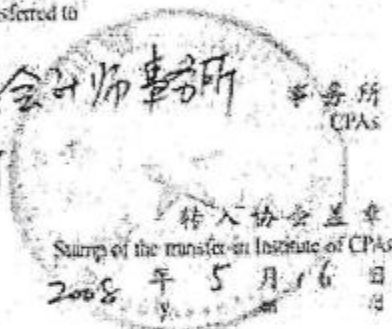 sferred to
会计师事务所 事务所
CPAs
转入协会盖章
Stamp of the transfer-in Institute of CPAs
2008 年 5 月 16 日
y m d